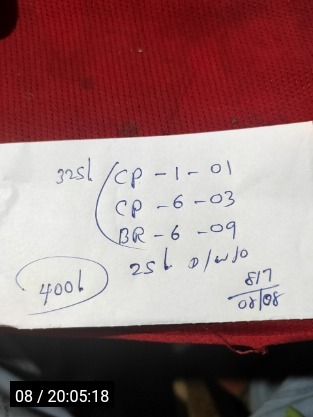 325L CP - 1 - 01
CP - 6 - 03
BR - 6 - 09
25L D/W/O
400L
817
08/08
08 / 20:05:18